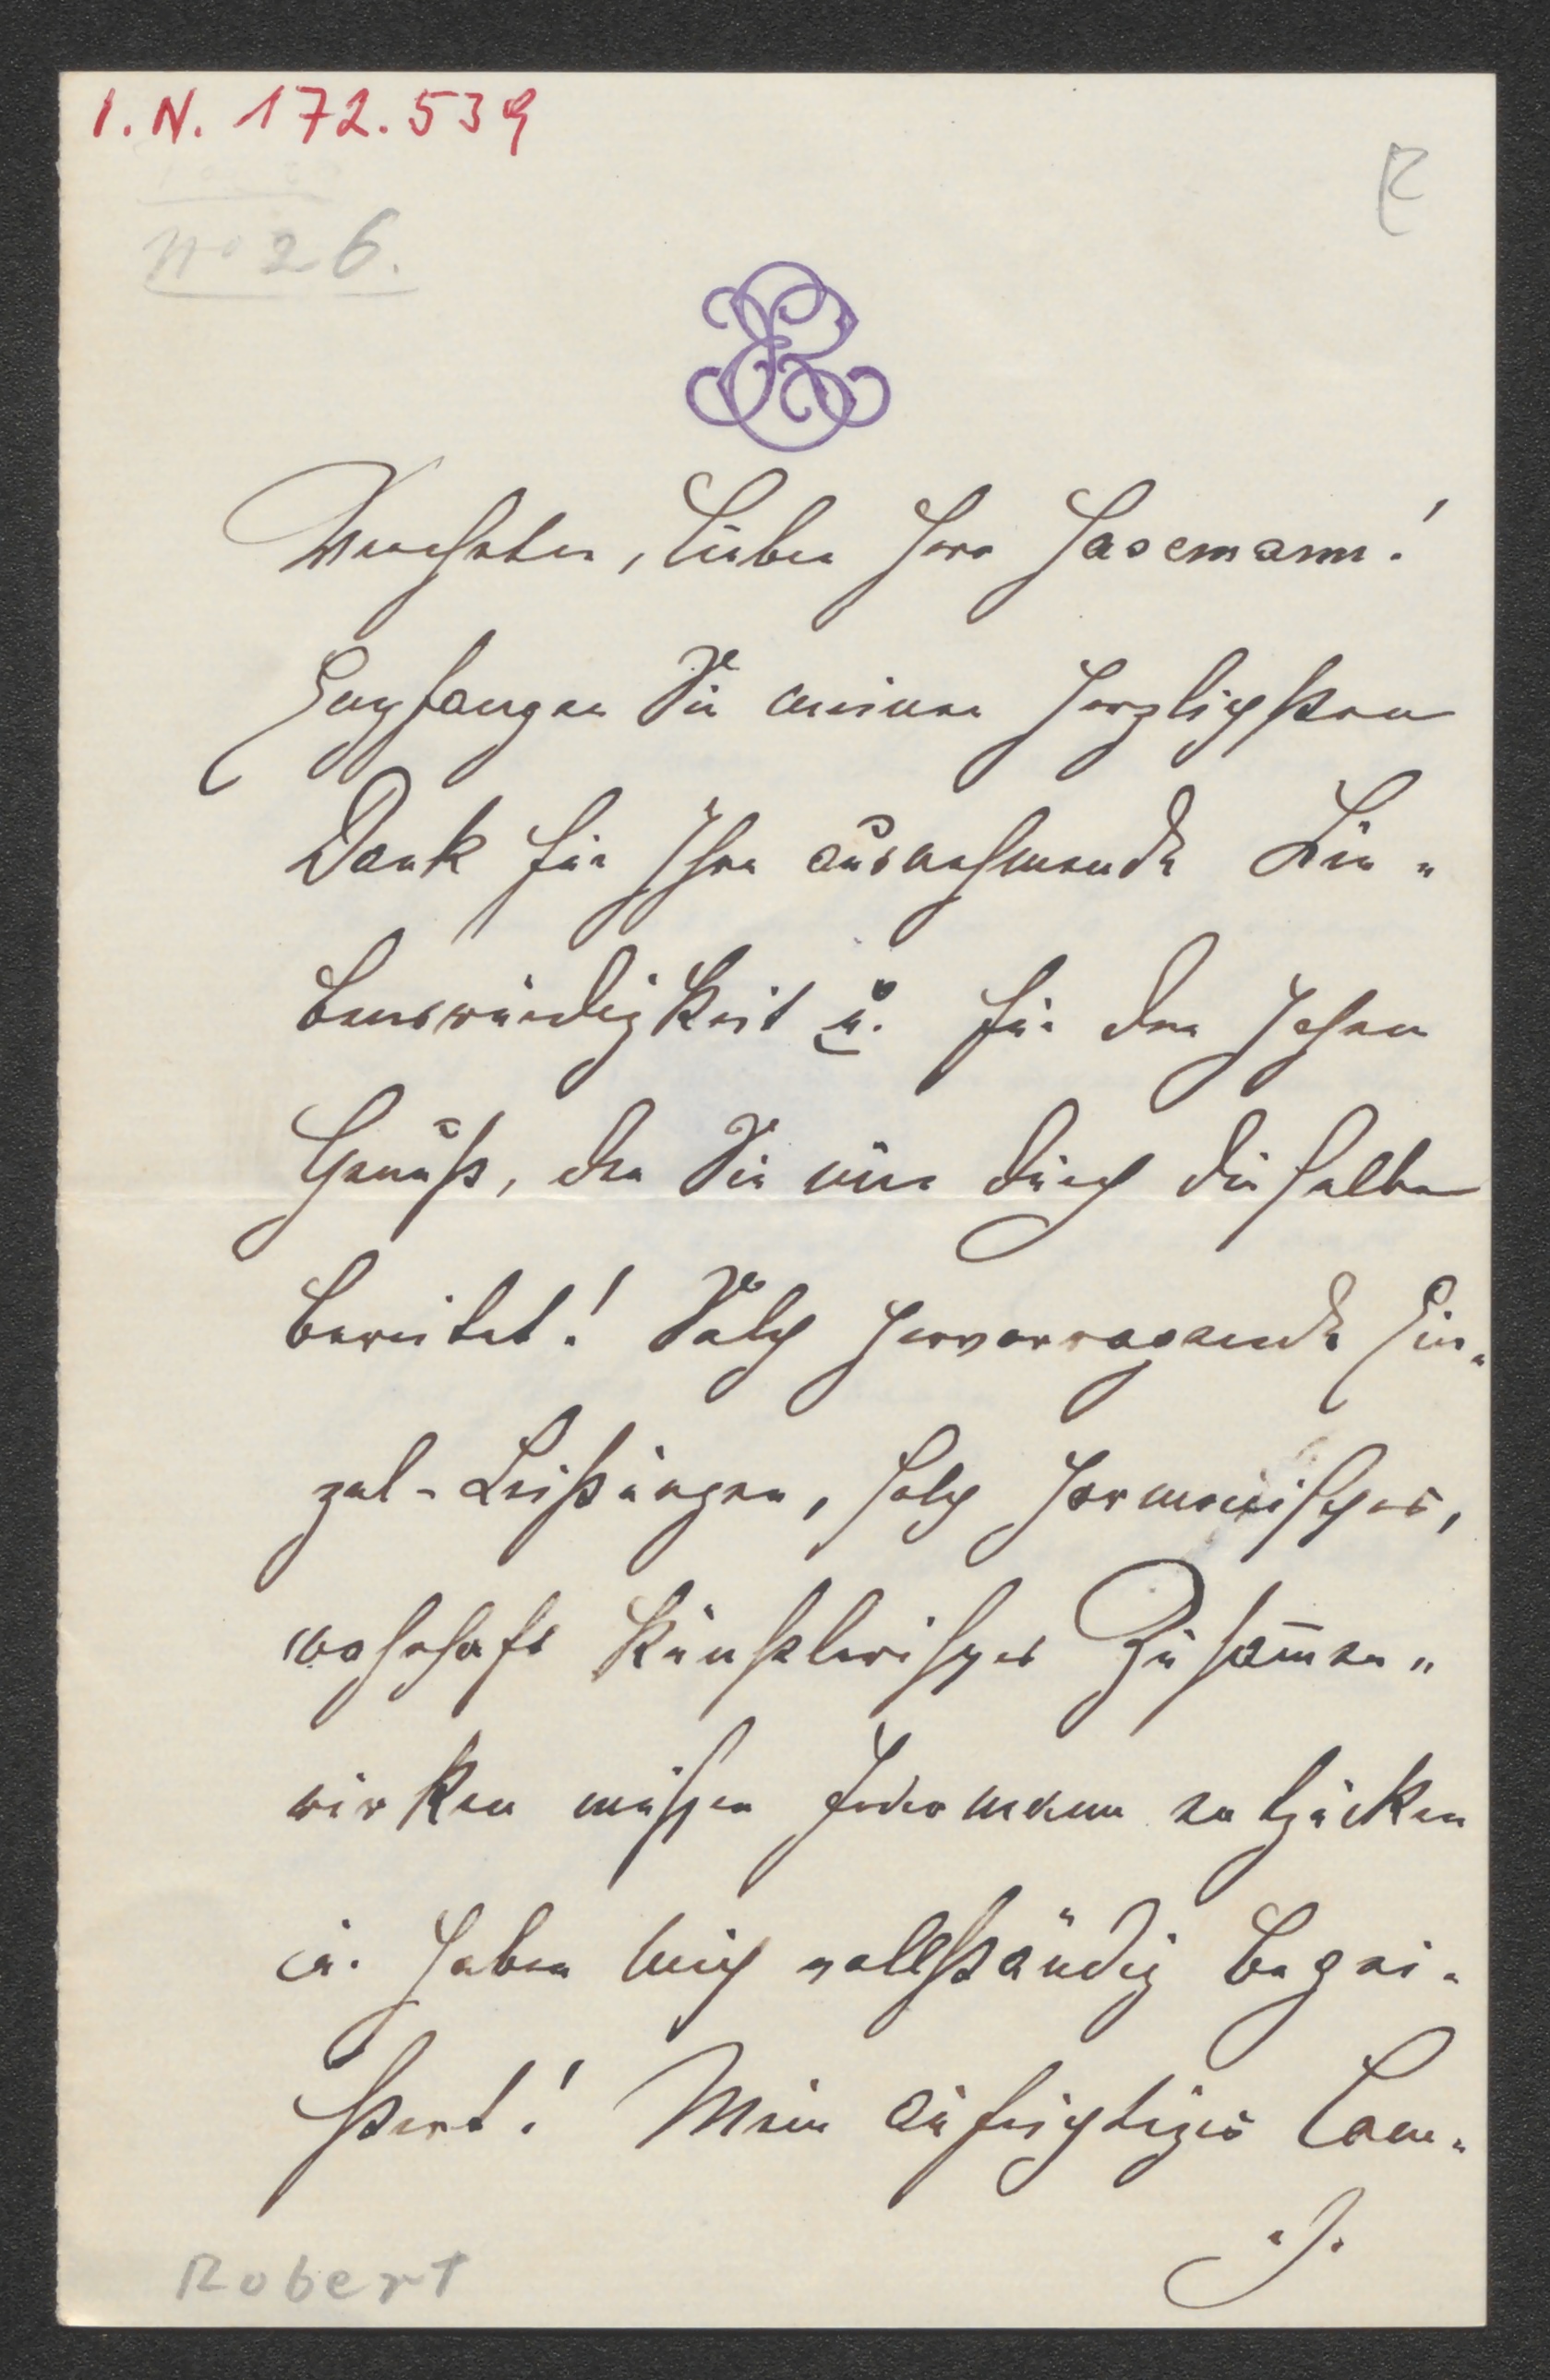 I. N. 172.539
No 26.
R
ER
Verehrter, lieber Herr Hasemann!
Empfangen Sie meinen herzlichsten
Dank für Ihre ausnehmende Lie-
benswürdigkeit u. für den hohen
Genuß, den Sie mir durch dieselbe
bereitet! Solch hervorragende Ein-
zel-Leistungen, solch harmonisches,
wahrhaft künstlerisches Zusam̅en-
wirken müssen Jedermann entzücken
u. haben mich vollständig begei-
stert! Mein aufrichtiges Com-
./.
Robert